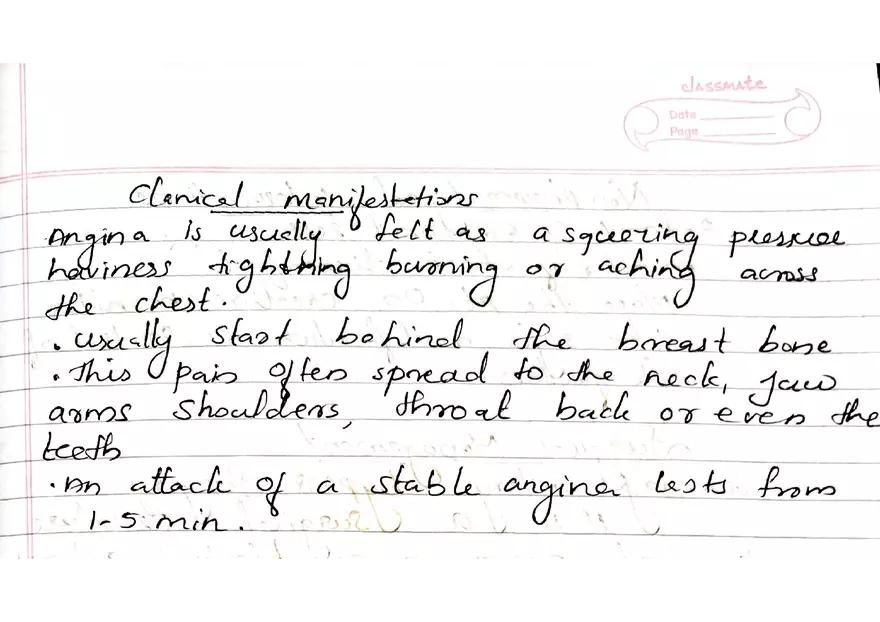 classmate
Date
Page
Clenical manifestations
Angina is usually felt as a sqeering pressure
haviness tightning burning or aching across
the chest.
. usually start behind the breast bone
. This pain often spread to the neck, jaw
arms shoulders, throat back or even the
teeth
. An attack of a stable angina lasts from
1-5 min.